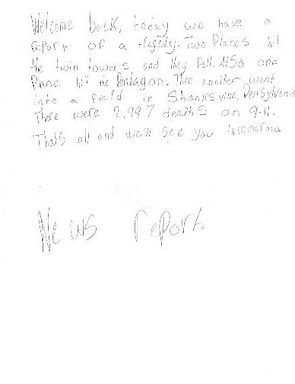 Welcome back, today we have a
report of a tragedy. Two Planes hit
the twin towers and they fell. Also one
Plane hit the Pentagon. Then another went
into a field in Shanksville, Pensylvania
There were 2,997 deaths on 9-11.
That's all and we'll see you tommorow
News report